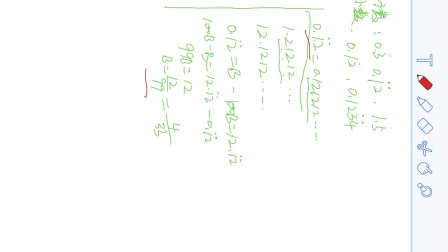 : 0.3̇ 0.1̇2̇ , 1.3̇
: 0.1̇2̇ , 0.1̇234̇
0.1̇2̇ = 0.121212……
1.21212……
12.1212……
0.1̇2̇ = B - 100B=12.1̇2̇
100B-B=12.1̇2̇-0.1̇2̇
99B=12
B=12/99=4/33